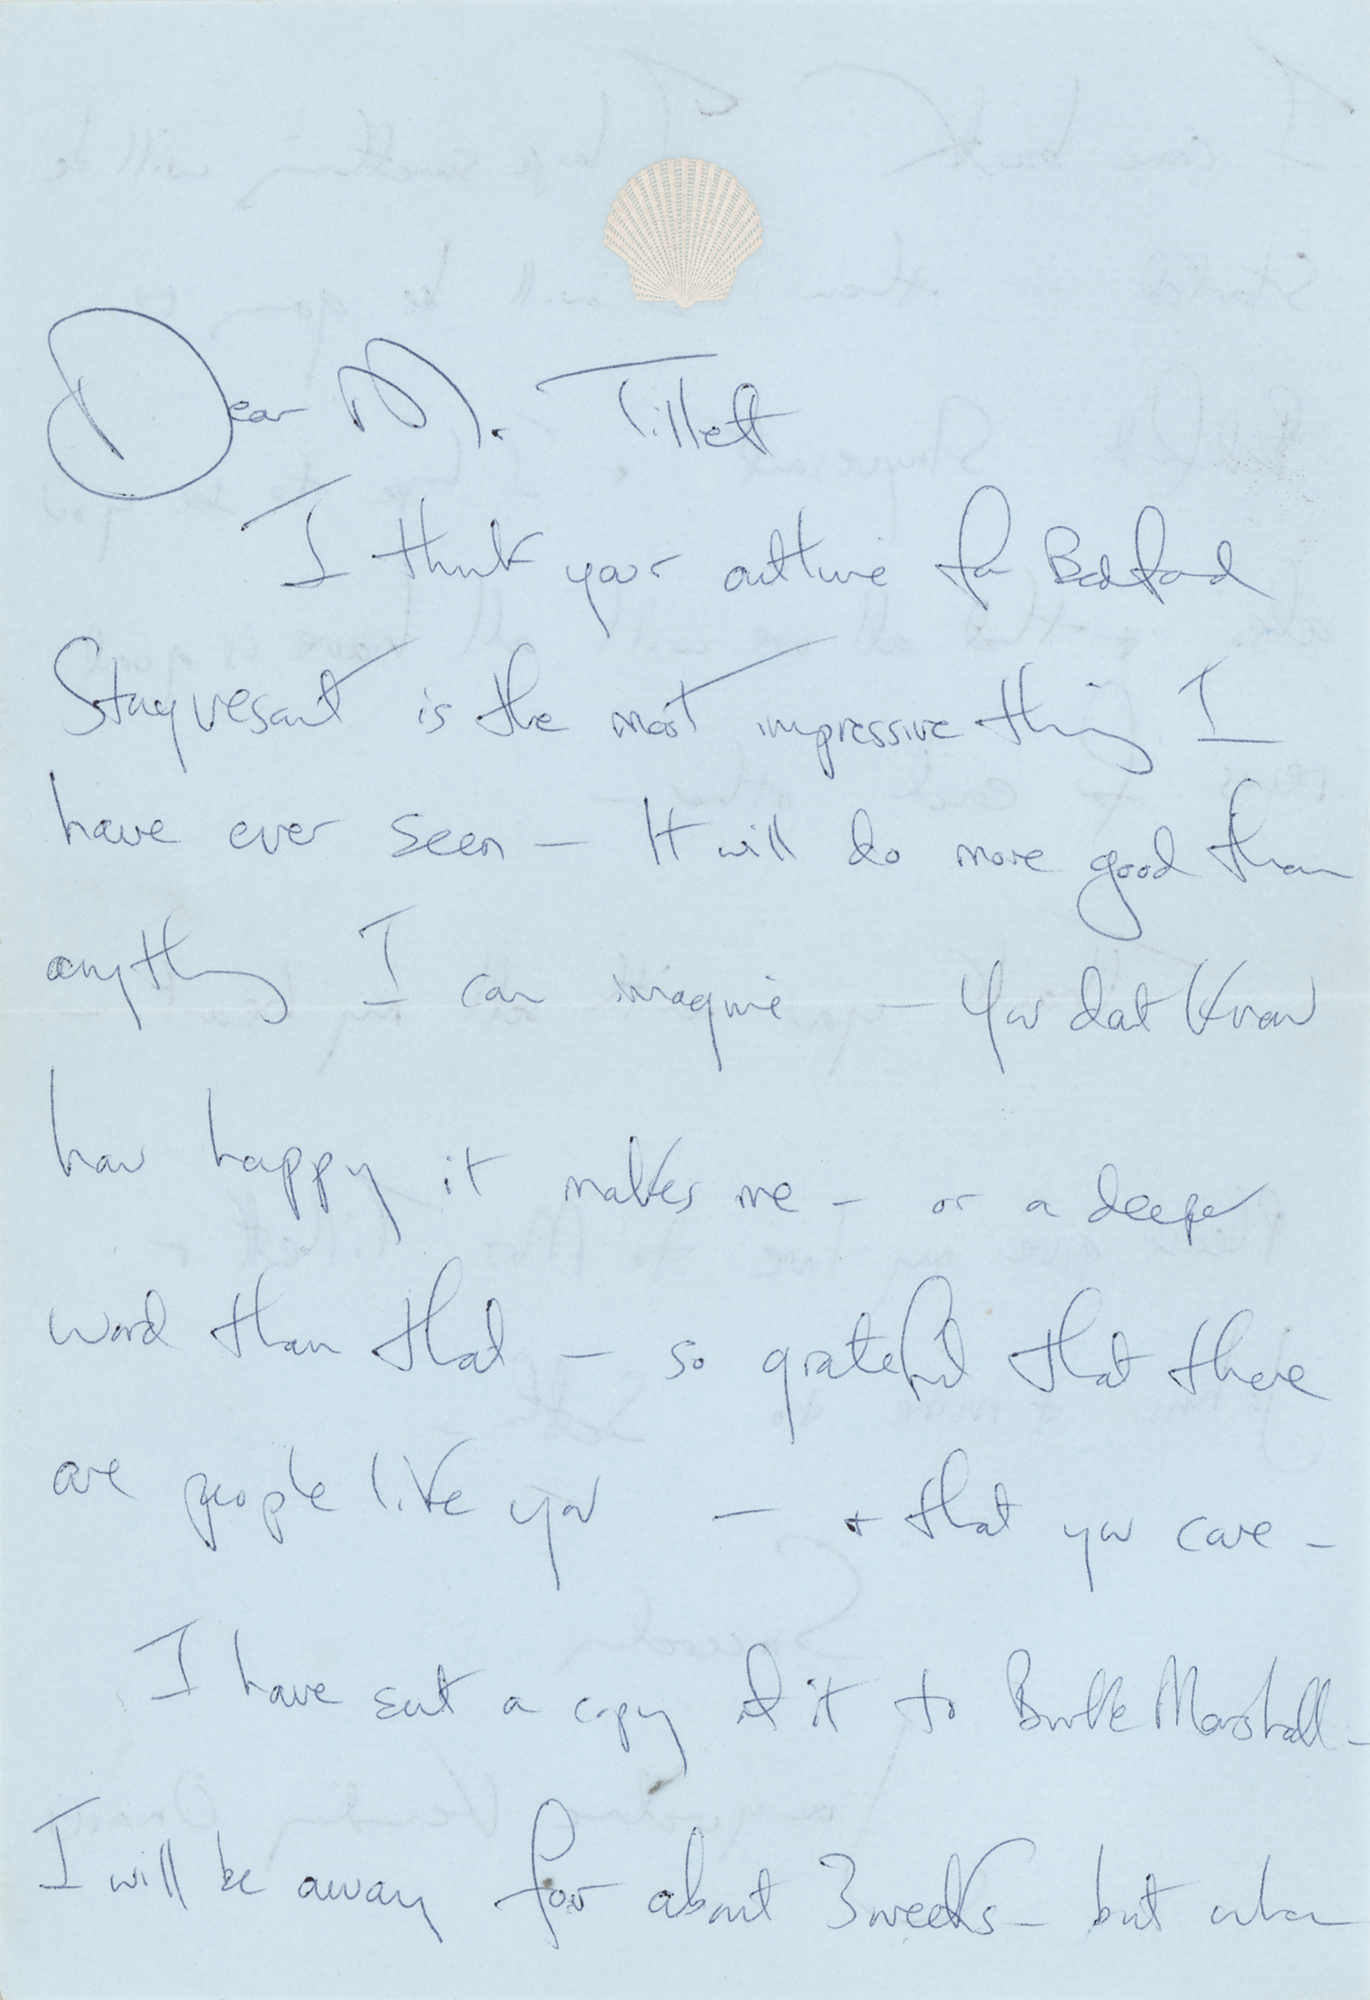 Dear Mr. Tillett
I think your outline for Bedford
Stuyvesant is the most impressive thing I
have ever seen — It will do more good than
anything I can imagine — You don't know
how happy it makes me — or a deeper
word than that — so grateful that there
are people like you — + that you care —
I have sent a copy of it to Burke Marshall —
I will be away for about 3 weeks — but when